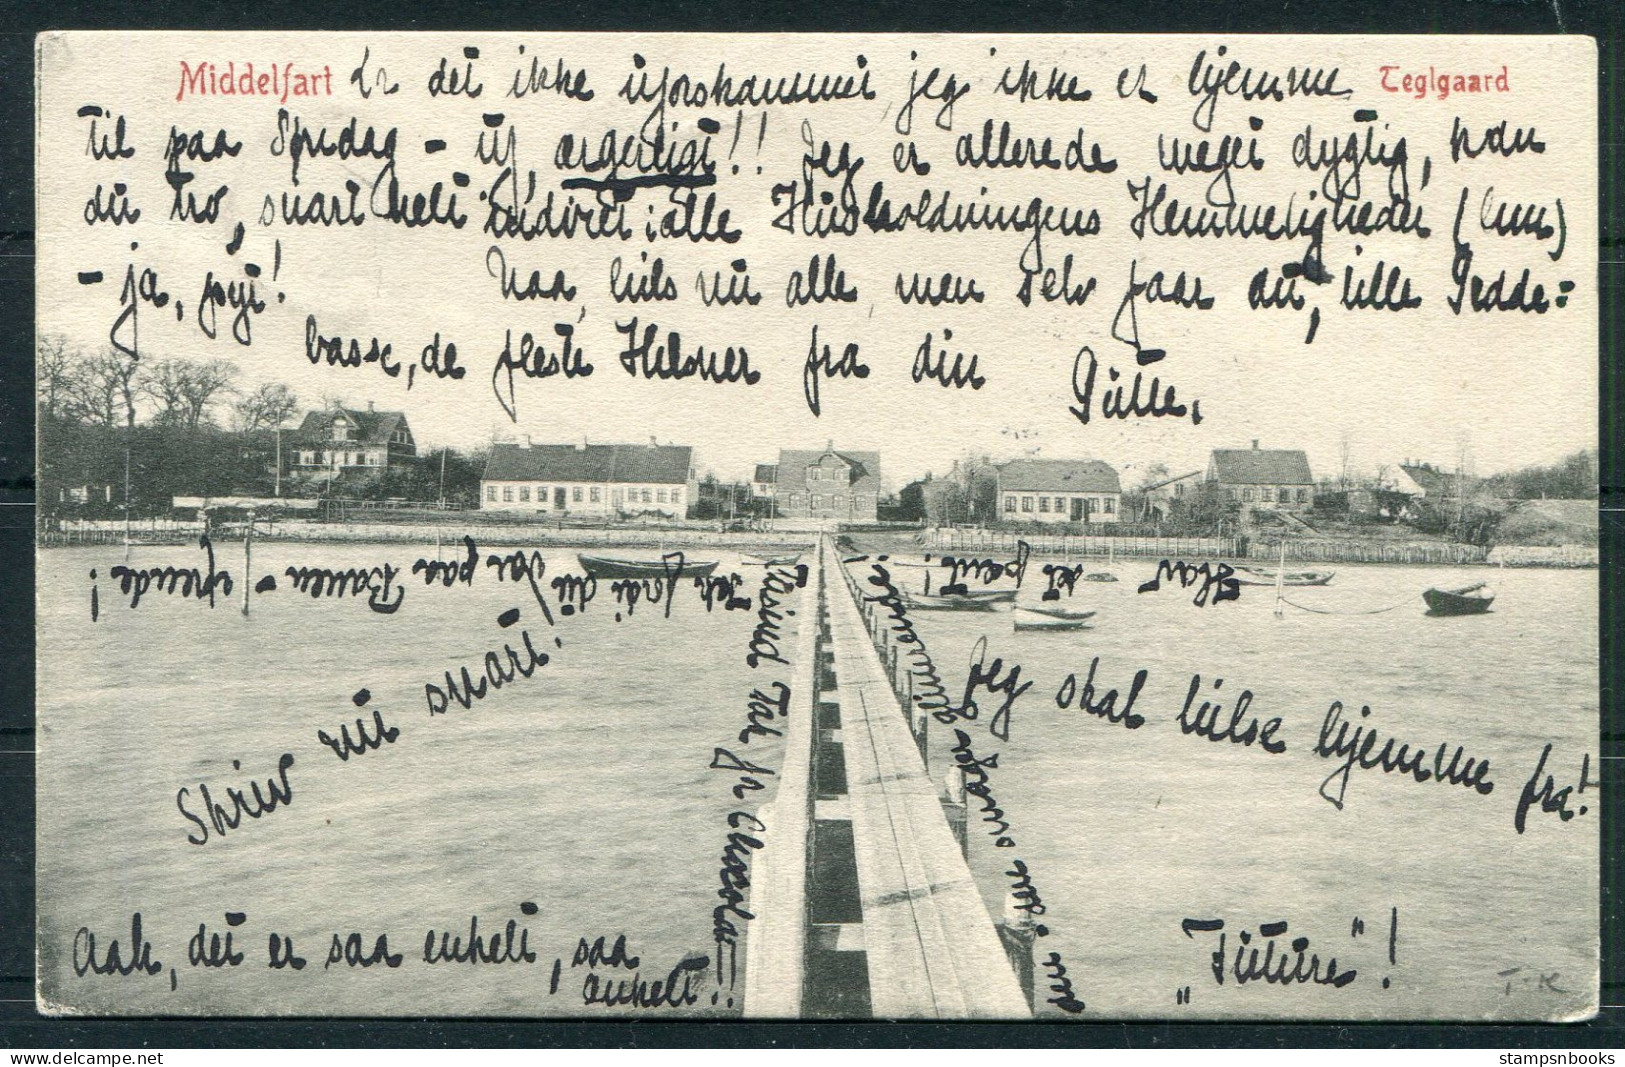 Middelfart Er det ikke uforskammet, jeg ikke er hjemme Teglgaard
til paa Søndag - uf, ærgerligt!! Jeg er allerede meget dygtig, kan
du tro, snart helt indviet i alle Husholdningens Hemmeligheder (hm)
- ja, pyt! Naa, hils nu alle, men selv faar du, lille Pedde=
basse, de fleste Hilsner fra din Putte.
Jeg fordi du var paa Banen
Hav det pænt!
Skriv nu snart!
Tusind Tak for Chocolade!!
Jeg skal hilse hjemme fra!
Aah, det er saa enkelt, saa
enkelt!!
"Futures"!
T.K
stampsnbooks